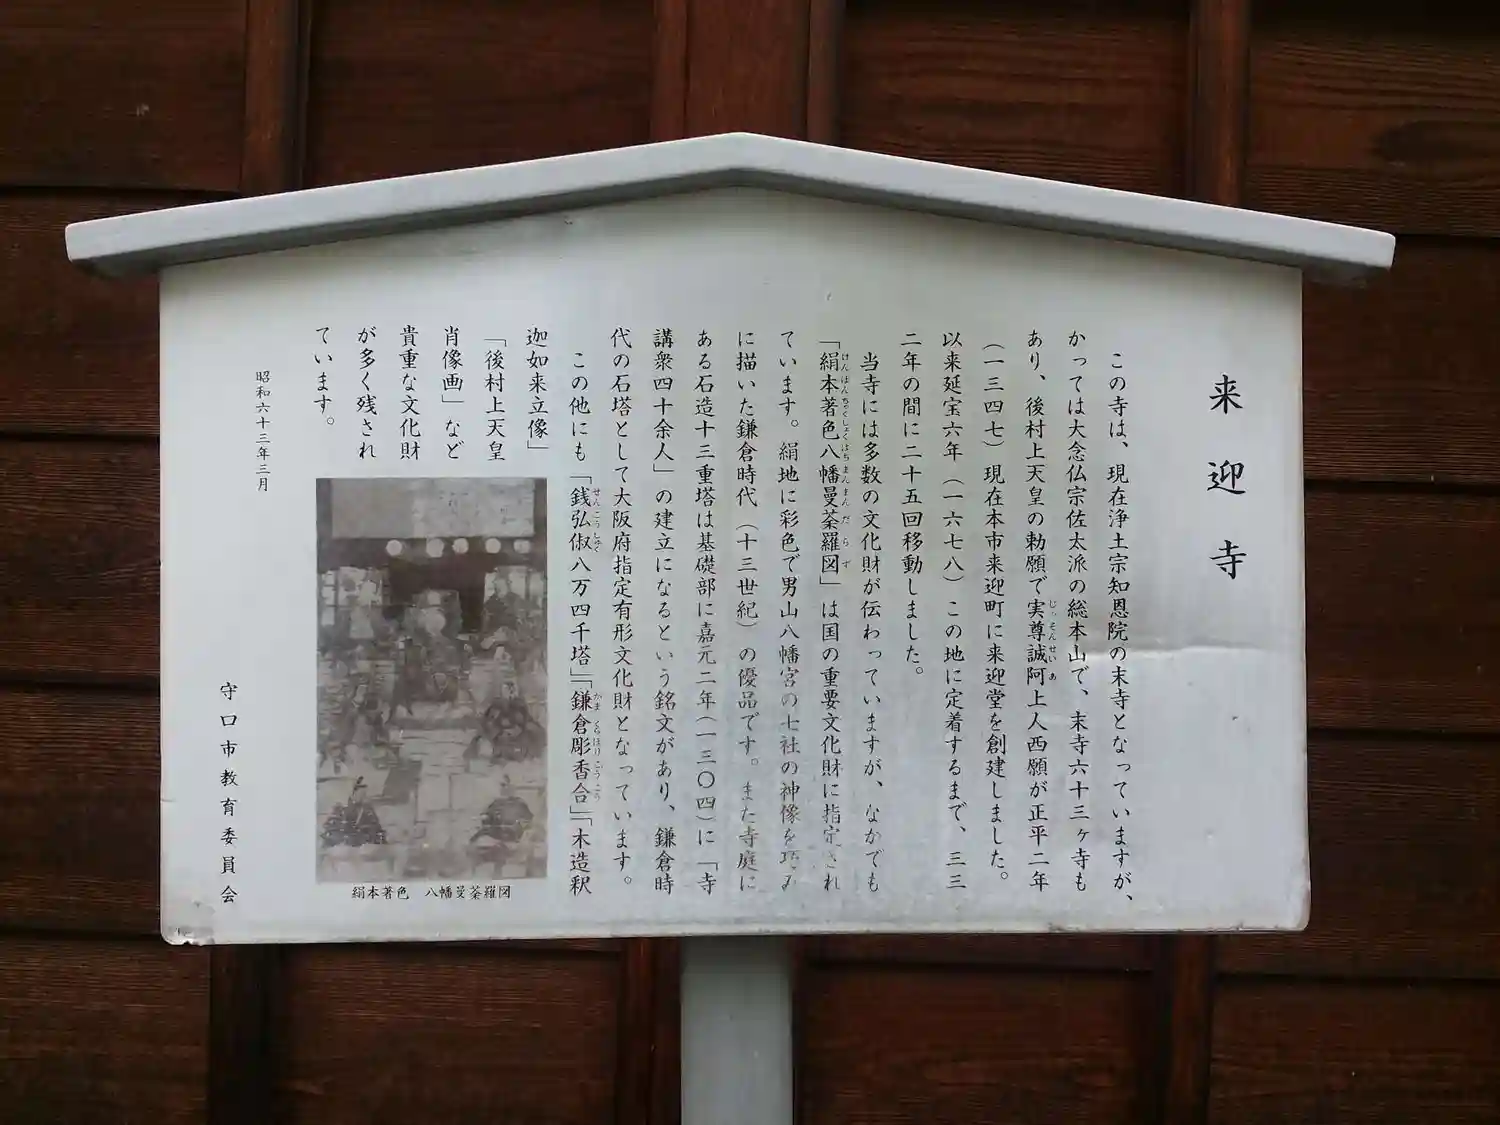 来迎寺
この寺は、現在浄土宗知恩院の末寺となっていますが、
かっては大念仏宗佐太派の総本山で、末寺六十三ヶ寺も
あり、後村上天皇の勅願で実尊誠阿上人西願が正平二年
(一三四七)現在本市来迎町に来迎堂を創建しました。
以来延宝六年(一六七八)この地に定着するまで、三三
二年の間に二十五回移動しました。
当寺には多数の文化財が伝わっていますが、なかでも
「絹本著色八幡曼荼羅図」は国の重要文化財に指定され
ています。絹地に彩色で男山八幡宮の七社の神像を巧み
に描いた鎌倉時代(十三世紀)の優品です。また寺庭に
ある石造十三重塔は基礎部に嘉元二年(一三〇四)に「寺
講衆四十余人」の建立になるという銘文があり、鎌倉時
代の石塔として大阪府指定有形文化財となっています。
この他にも「銭弘俶八万四千塔」「鎌倉彫香合」「木造釈
迦如来立像」
「後村上天皇
肖像画」など
貴重な文化財
が多く残され
ています。
昭和六十三年三月
守口市教育委員会
絹本著色 八幡曼荼羅図